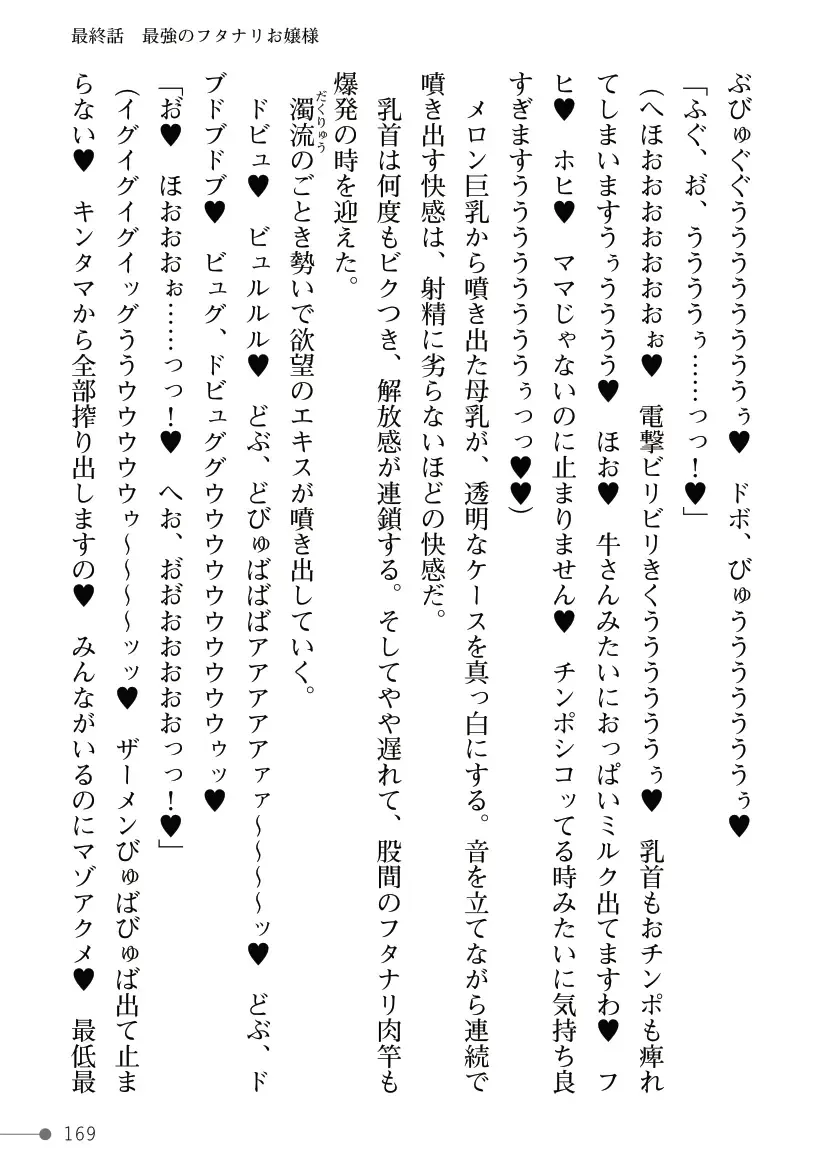 最終話　最強のフタナリお嬢様
ぶびゅぐぐうううううううぅ♥　ドボ、びゅうううううううぅ♥
「ふぐ、お゙、うううぅ……っっ！♥」
（へほおおおおおおおぉ♥　電撃ビリビリきくううううううぅ♥　乳首もおチンポも痺れ
てしまいますうぅうううう♥　ほお♥　牛さんみたいにおっぱいミルク出てますわ♥　フ
ヒ♥　ホヒ♥　ママじゃないのに止まりません♥　チンポシコッてる時みたいに気持ち良
すぎますうううううううううぅっっ♥♥）
メロン巨乳から噴き出た母乳が、透明なケースを真っ白にする。音を立てながら連続で
噴き出す快感は、射精に劣らないほどの快感だ。
乳首は何度もビクつき、解放感が連鎖する。そしてやや遅れて、股間のフタナリ肉竿も
爆発の時を迎えた。
濁流のごとき勢いで欲望のエキスが噴き出していく。
だくりゅう
ドビュ♥　ビュルルル♥　どぶ、どびゅばばばアアアアアァァ～～～～ッ♥　どぶ、ド
ブドブドブ♥　ビュグ、ドビュググウウウウウウウウウゥッ♥
「お゙♥　ほおおおぉ……っっ！♥　へお、お゙お゙おおおおおっっ！♥」
（イグイグイグイッグううウウウウウゥ～～～～ッッ♥　ザーメンびゅばびゅば出て止ま
らない♥　キンタマから全部搾り出しますの♥　みんながいるのにマゾアクメ♥　最低最
169